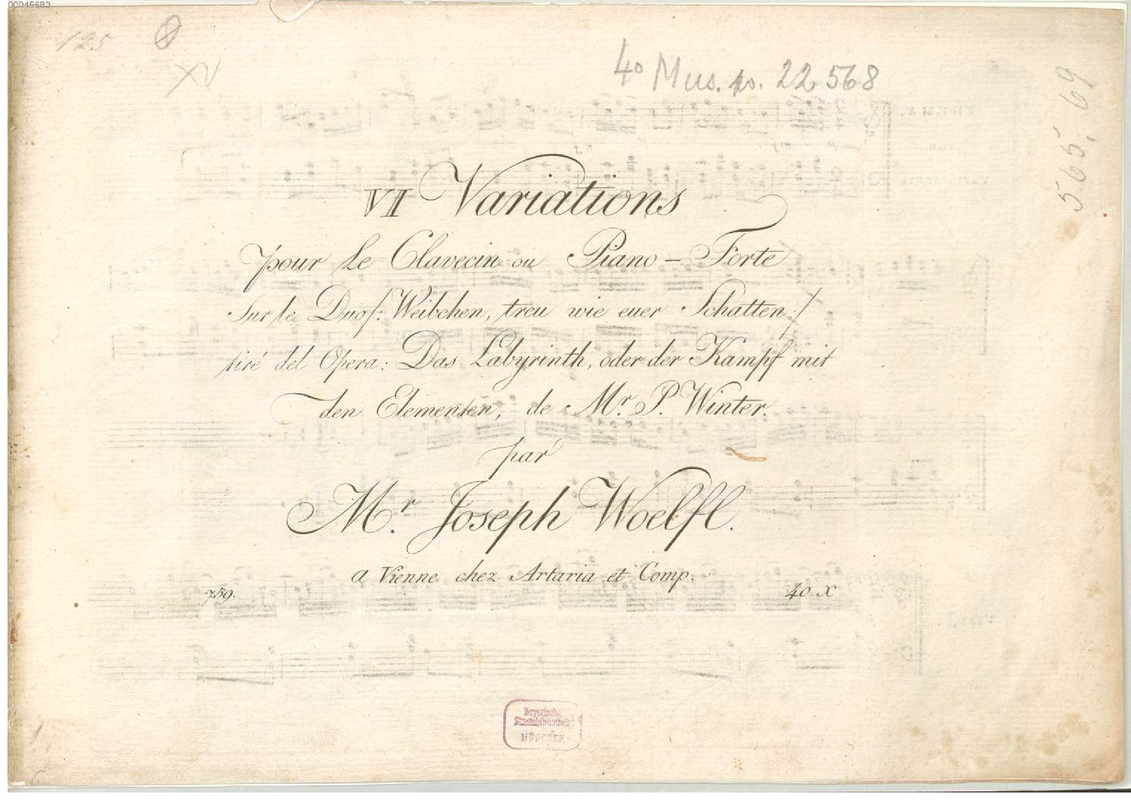 00045683
125
4o Mus. pr. 22568
565, 69
VI Variations
pour le Clavecin ou Piano – Forte
Sur le Duo /: Weibchen, treu wie euer Schatten :/
tiré del Opera: Das Labyrinth, oder der Kampf mit
den Elementen, de Mr. P. Winter.
par
Mr. Joseph Woelfl.
a Vienne chez Artaria et Comp.
759. 40 x
Bayerische
Staatsbibliothek
MÜNCHEN